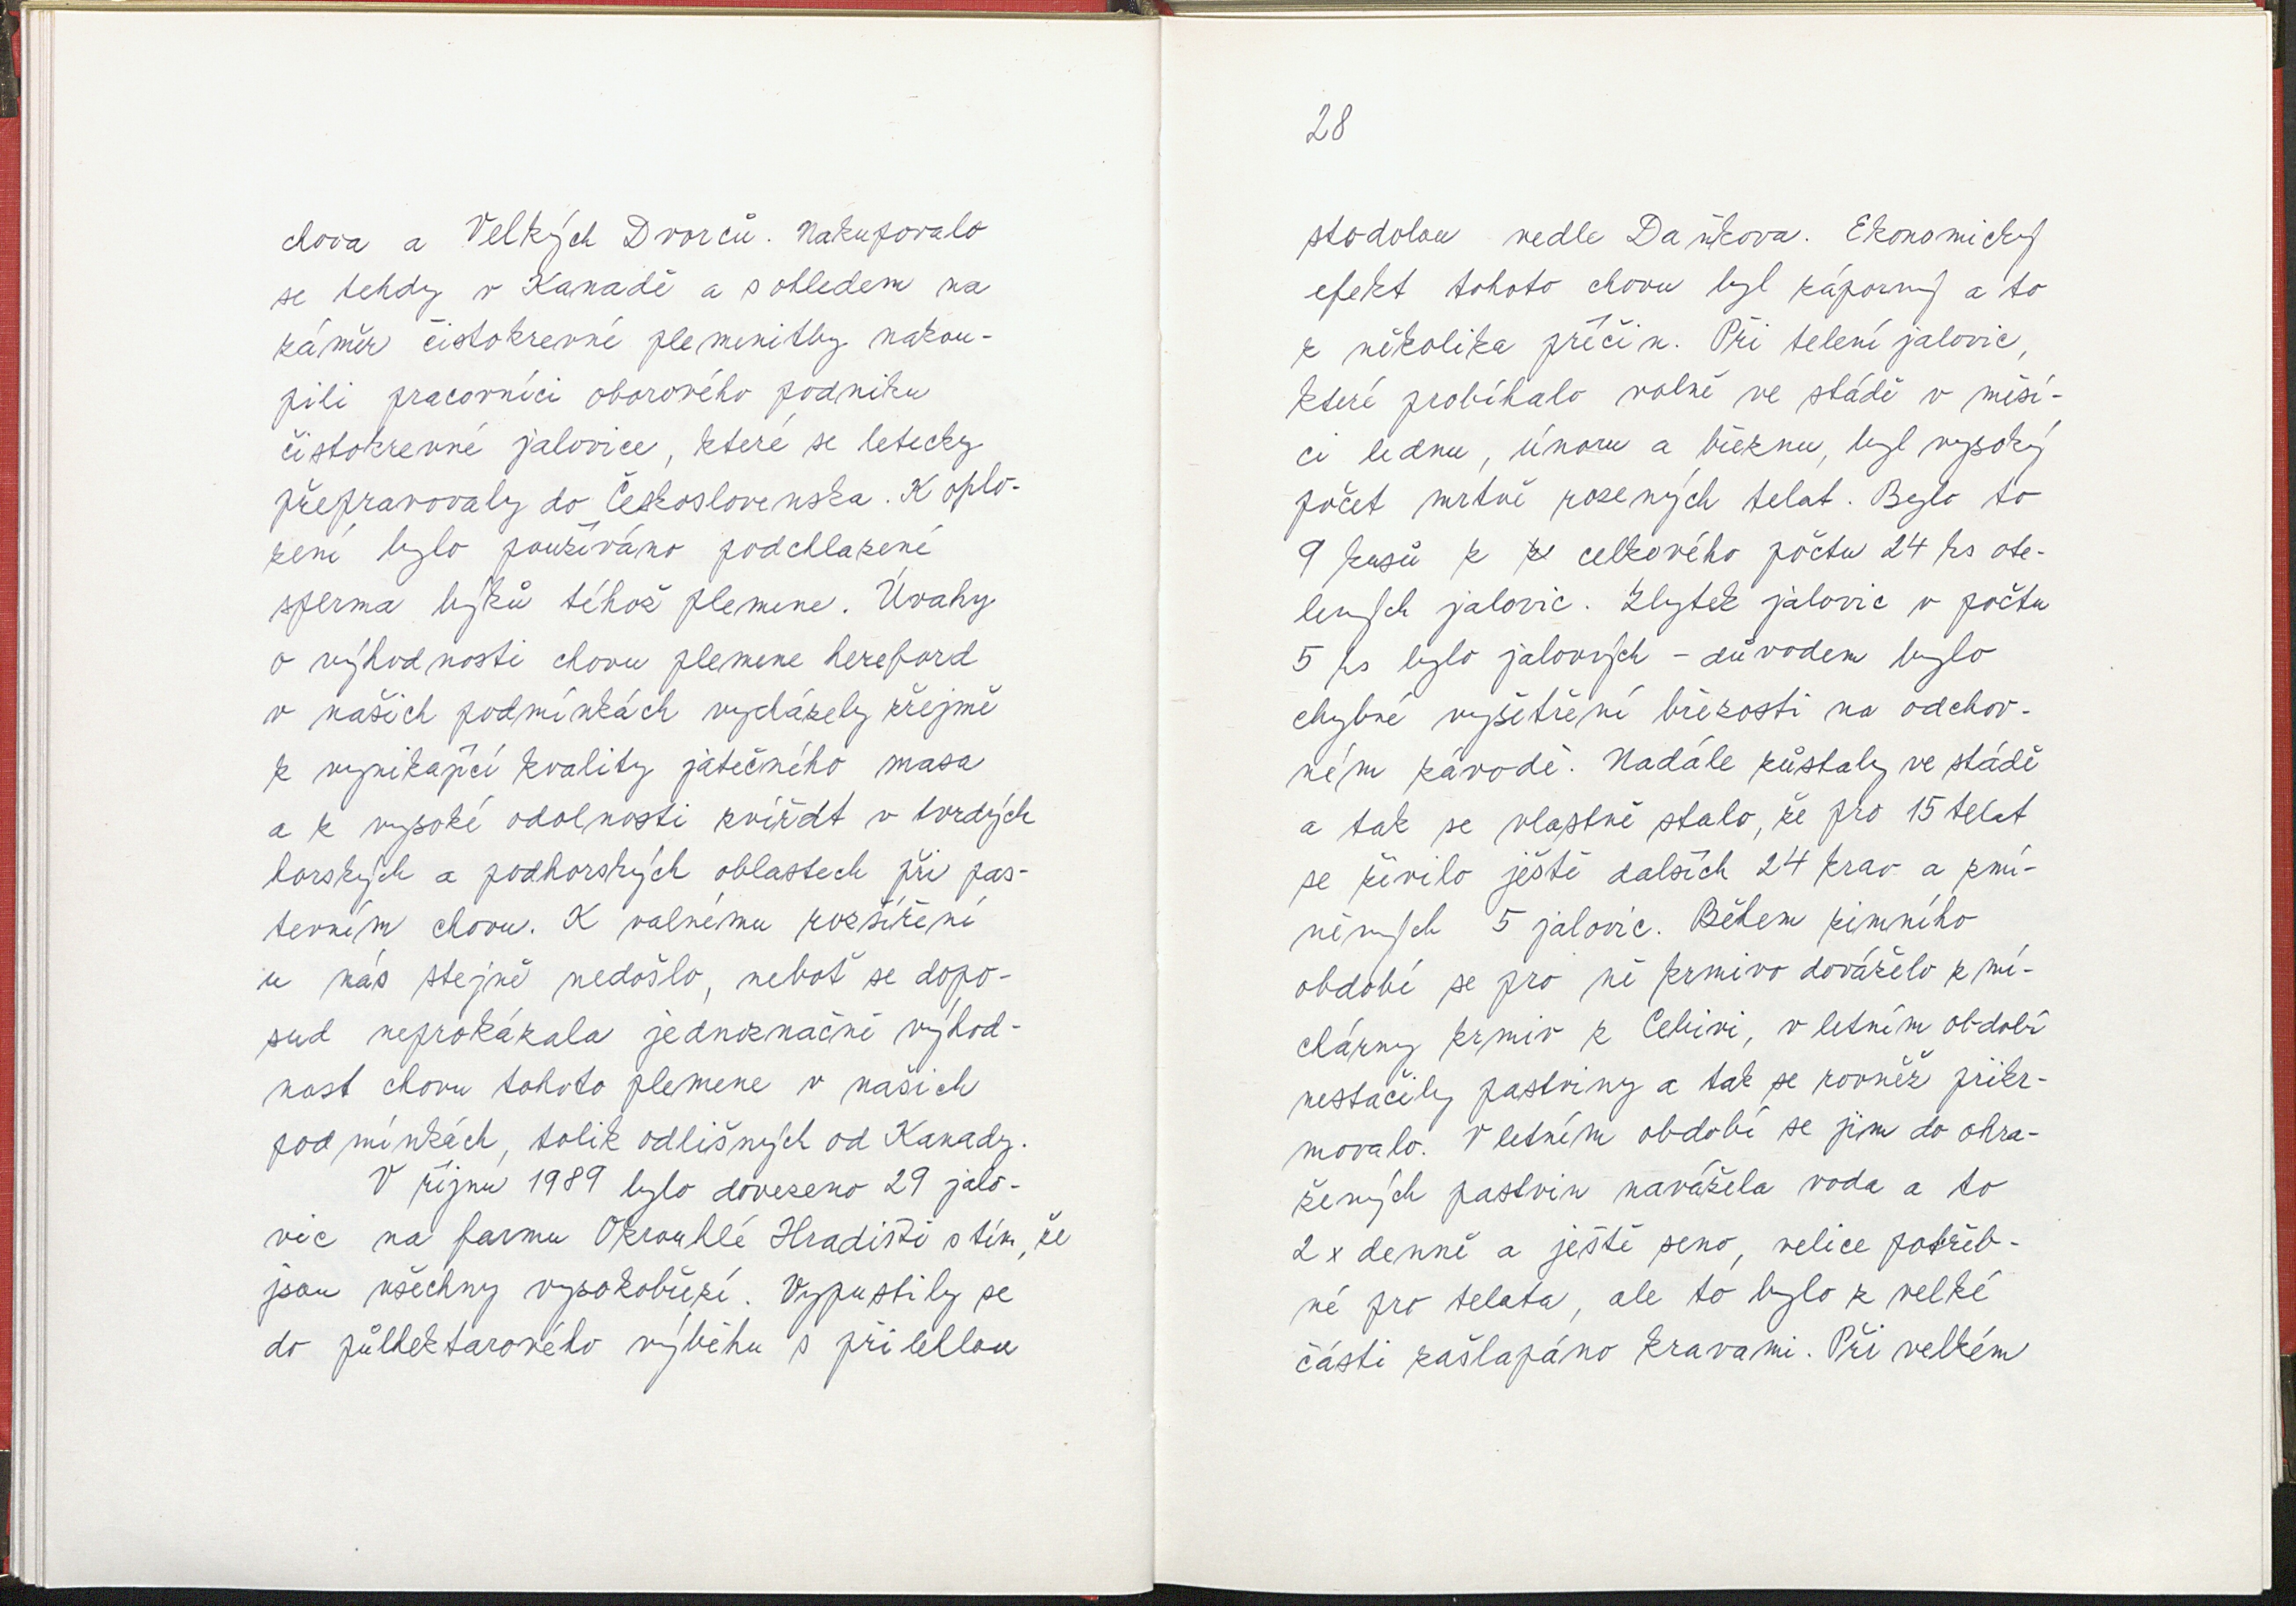 chova a Velkých Dvorců. Nakupovalo
se tehdy v Kanadě a s ohledem na
záměr čistokrevné plemenitby nakou-
pili pracovníci oborového podniku
čistokrevné jalovice, které se letecky
přepravovaly do Československa. K oplo-
zení bylo používáno podchlazené
sperma býků téhož plemene. Úvahy
o výhodnosti chovu plemene hereford
v našich podmínkách vycházely zřejmě
z vynikající kvality jatečného masa
a z vysoké odolnosti zvířat v tvrdých
horských a podhorských oblastech při pas-
tevním chovu. K valnému rozšíření
u nás stejně nedošlo, neboť se dopo-
sud neprokázala jednoznačně výhod-
nost chovu tohoto plemene v našich
podmínkách, tolik odlišných od Kanady.
V říjnu 1989 bylo dovezeno 29 jalo-
vic na farmu Okrouhlé Hradiště s tím, že
jsou všechny vysokobřezí. Vypustily se
do půlhektarového výběhu s přilehlou
28
stodolou vedle Daňkova. Ekonomický
efekt tohoto chovu byl záporný a to
z několika příčin. Při telení jalovic,
které probíhalo volně ve stádě v měsí-
ci lednu, únoru a březnu, byl vysoký
počet mrtvě rozených telat. Bylo to
9 kusů z z celkového počtu 24 ks ote-
lených jalovic. Zbytek jalovic v počtu
5 ks bylo jalových - důvodem bylo
chybné vyšetření březosti na odchov-
ném závodě. Nadále zůstaly ve stádě
a tak se vlastně stalo, že pro 15 telat
se živilo ještě dalších 24 krav a zmí-
něných 5 jalovic. Během zimního
období se pro ně krmivo dováželo z mí-
chárny krmiv z Cebivi, v letním období
nestačily pastviny a tak se rovněž přikr-
movalo. V letním období se jim do ohra-
žených pastvin navážela voda a to
2x denně a ještě seno, velice potřeb-
né pro telata, ale to bylo z velké
části zašlapáno kravami. Při velkém